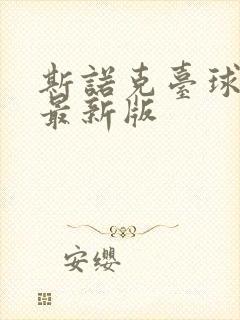 斯諾克臺球
最新版
安纓